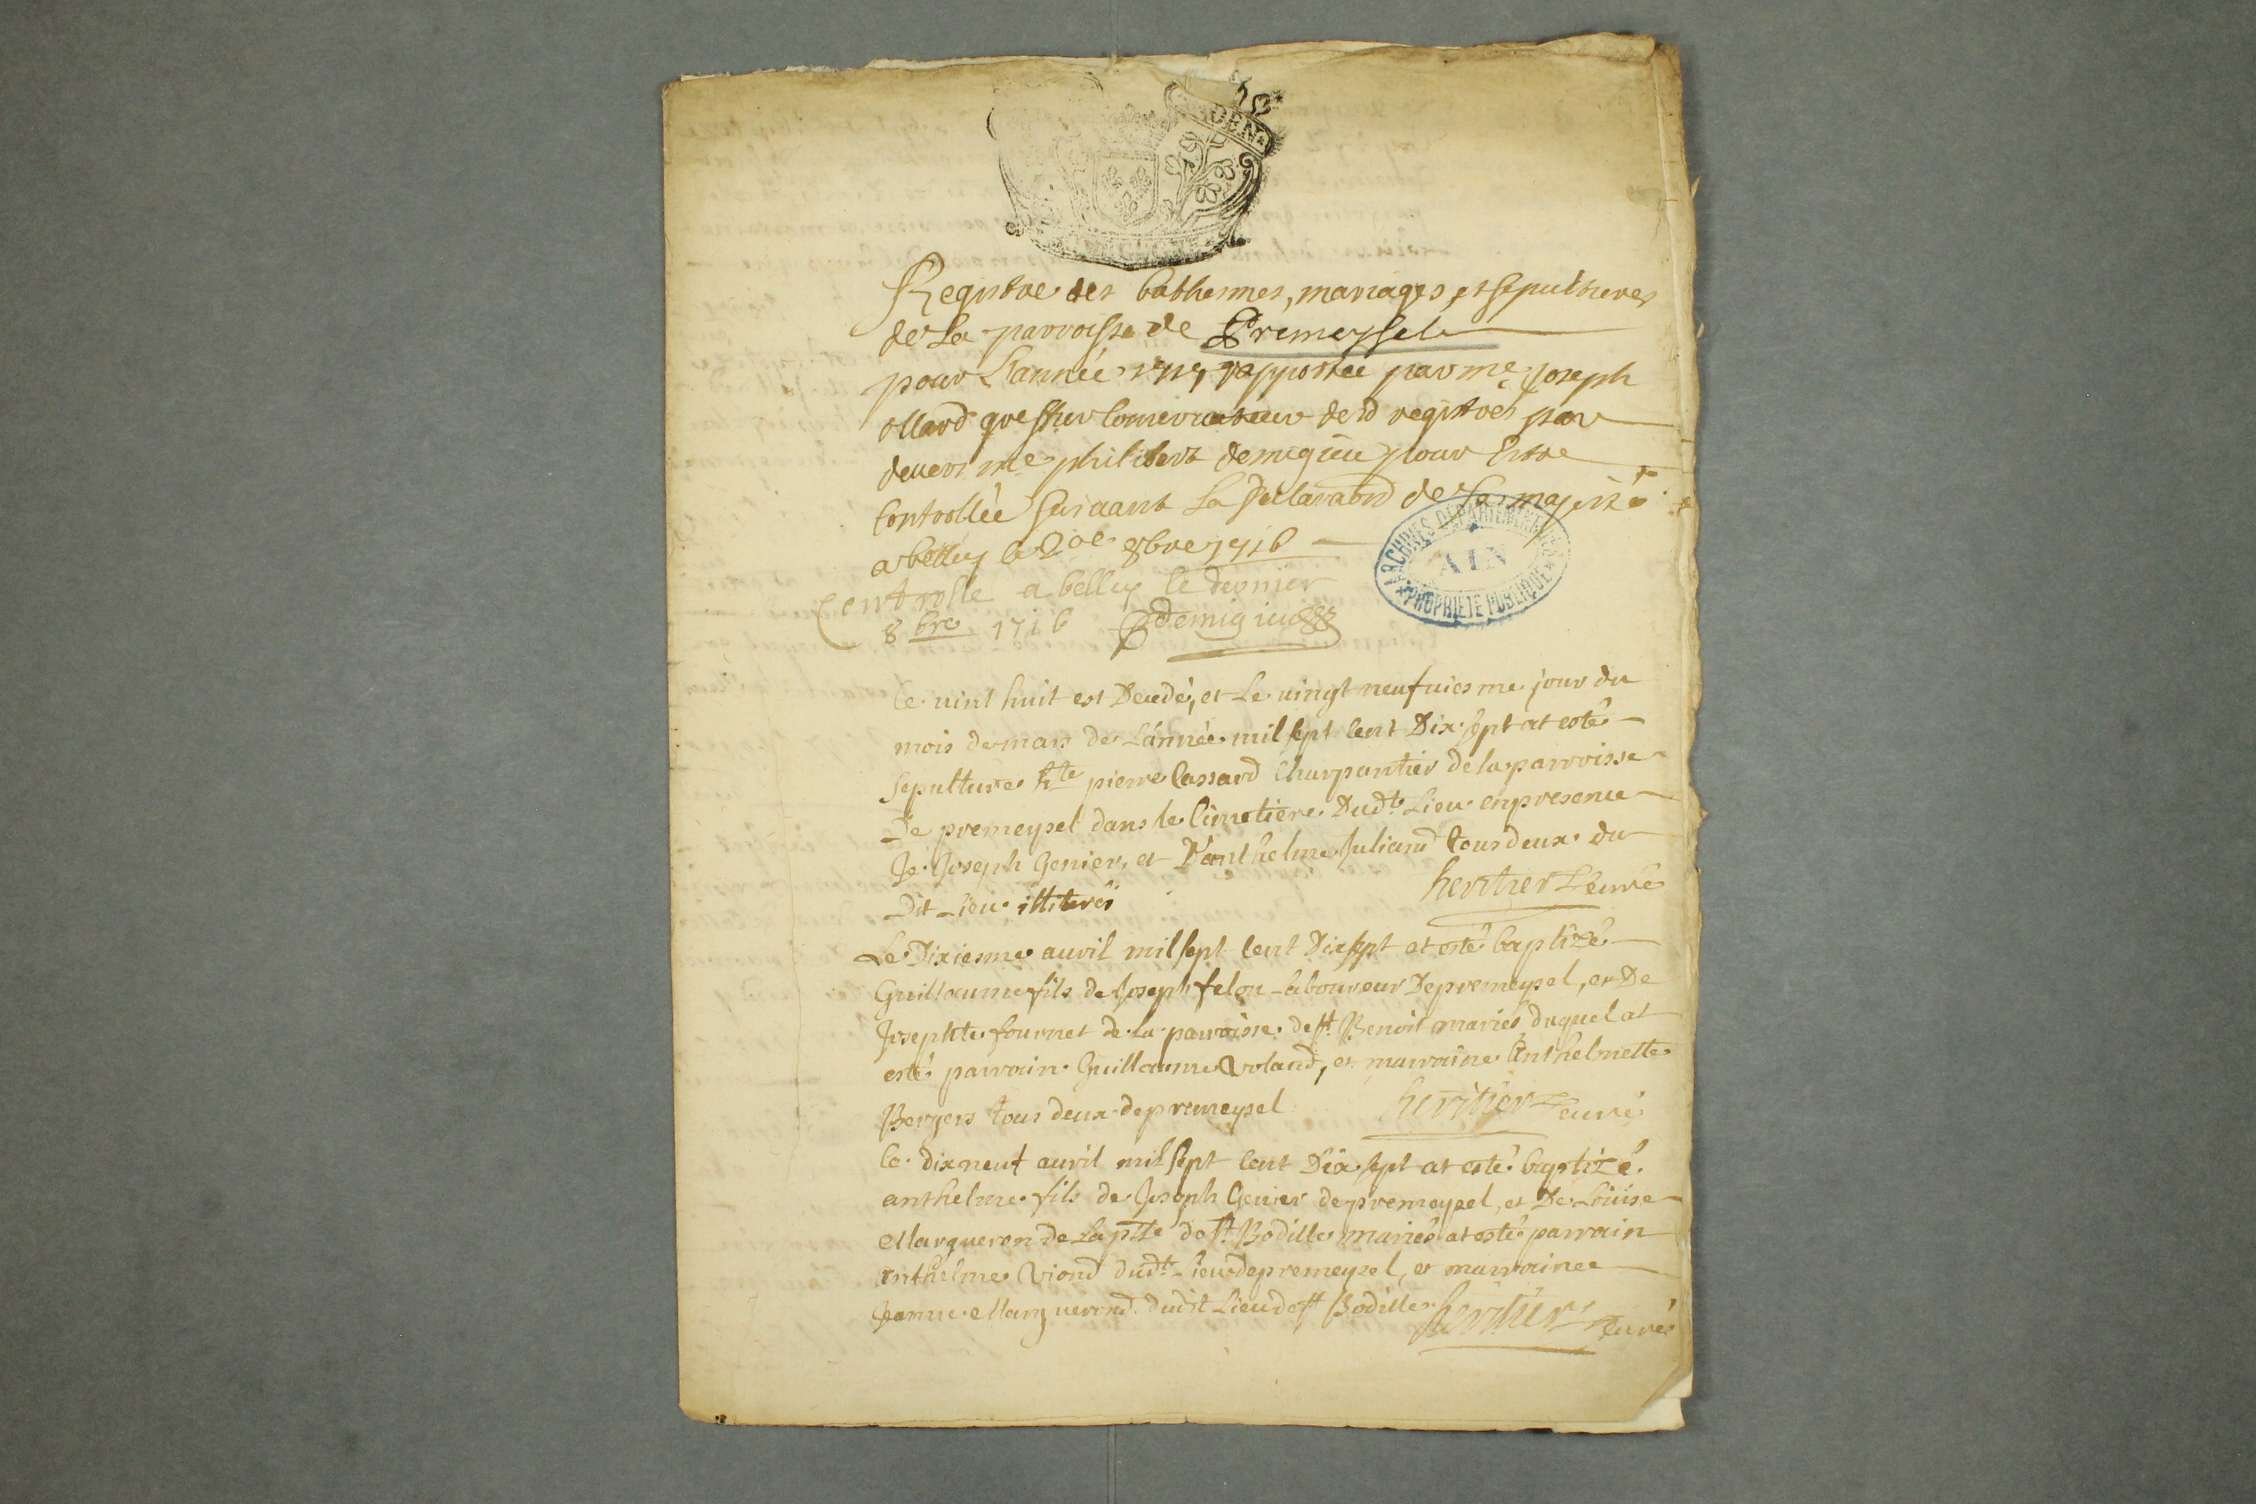 DEN.
Registre des bathesmes, mariages, et sepultures
de La parroisse de Premeyssel
pour L'année 1717, rapportée par me Joseph
ollard greffier Conservateur desd registres par
devers me philibert demigieu pour Estre
Controllée suivant La Declaraōn de Sa majesté
a belley le 2oe 8bre 1716
Controlle a belley le dernier
8bre 1716 Demigieu
ARCHIVES DEPARTEMENTALES
AIN
PROPRIETE PUBLIQUE
Le vint huit est Decedé, et Le vingt neufviesme jour du
mois de mars de L'année mil sept cent Dix sept at esté
sepulturé hte pierre Cassard Charpantier de la parroisse
De premeysel dans le Cimetiere Dudt Lieu en presence
De Joseph Genier, et D'anthelme Juliand tous deux du
Dit Lieu illiterés heritier Curé
Le Dixiesme avril mil sept cent Dixsept at esté baptizé
Guillaume fils de Joseph felon Laboureur De premeysel, et De
Josephte fournet de la parroisse de st Benoit mariés duquel at
esté parrain Guillaume Voland, et marraine Anthelmette
Bergers tous deux de premeysel heritier Curé
le dixneuf avril mil sept cent Dix sept at esté baptizé
anthelme fils de Joseph Genier de premeysel, et De Loüise
Margueron de La psse de st Bodille mariés at esté parrain
anthelme Viond dudt lieu de premeysel, et marraine
Jeanne Marguerond dudit Lieu de st Bodille heritier Curé